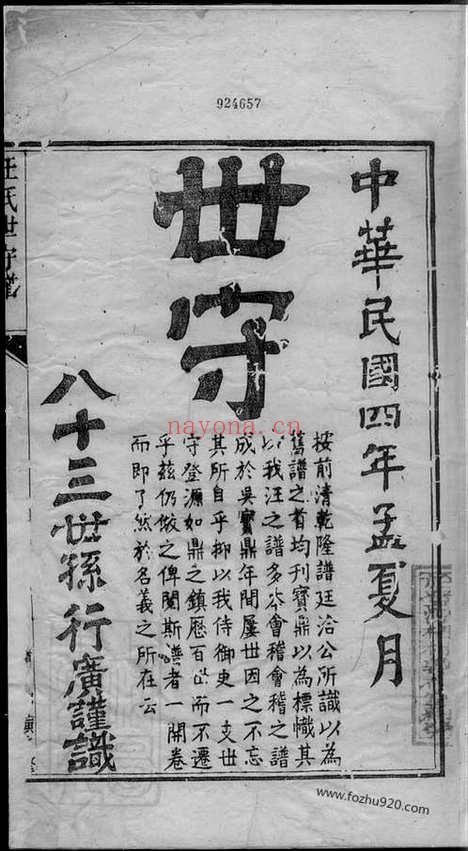 924657
中華民國四年孟夏月
世守
按前清乾隆譜廷洽公所識以為
舊譜之首均刊寶鼎以為標幟其
以我汪之譜多本會稽會稽之譜
成於吳寶鼎年間屢世因之不忘
其所自乎抑以我侍御史一支世
守登源如鼎之鎮歷百世而不遷
乎茲仍倣之俾閱斯譜者一開卷
而即了然於名義之所在云
八十三世孫行廣謹識
汪氏世守譜
nayona.cn
www.fozhu920.com